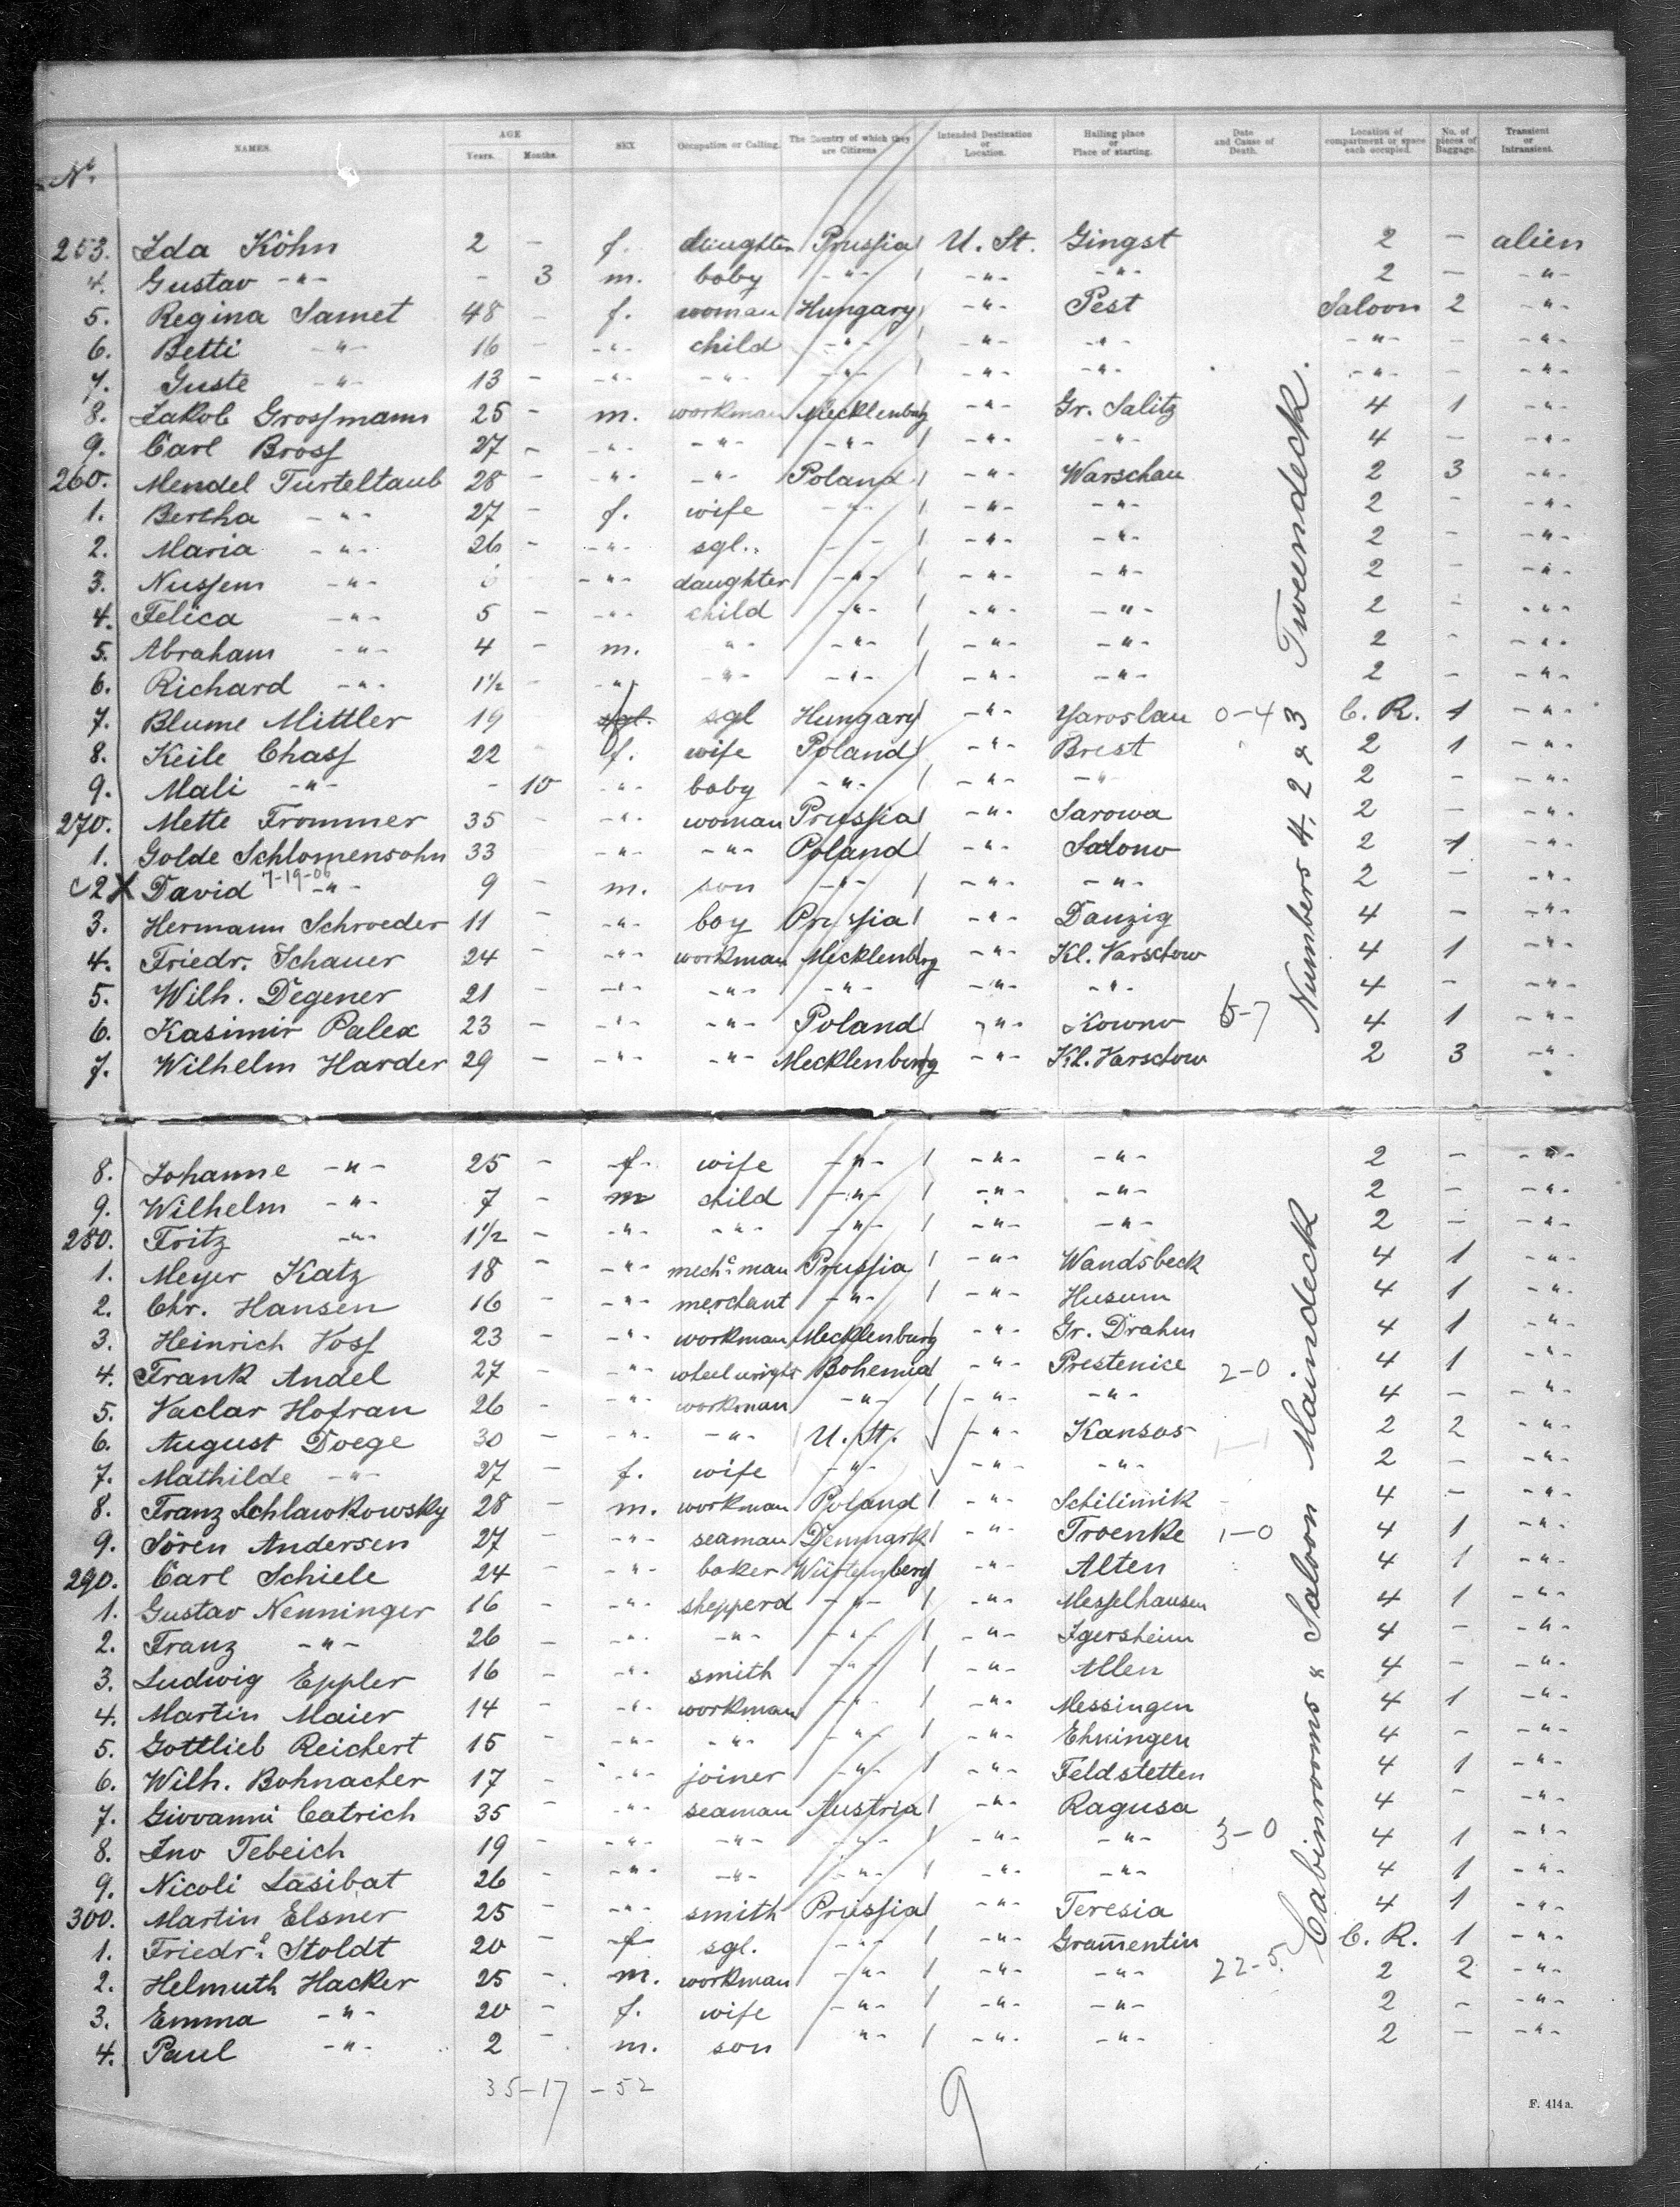 No. NAMES. AGE Years. Months. SEX Occupation or Calling. The Country of which they are Citizens Intended Destination or Location. Hailing place or Place of starting. Date and Cause of Death. Location of compartment or space each occupied. No. of pieces of Baggage. Transient or Intransient.
253. Ida Köhn 2 - f. daughter Prussia U. St. Gingst 2 - alien
4. Gustav -"- - 3 m. baby -"- -"- -"- 2 - -"-
5. Regina Samet 48 - f. woman Hungary -"- Pest Saloon 2 -"-
6. Betti -"- 16 - -"- child -"- -"- -"- -"- - -"-
7. Guste -"- 13 - -"- -"- -"- -"- -"- -"- - -"-
8. Jakob Grossmann 25 - m. workman Mecklenburg -"- Gr. Salitz 4 1 -"-
9. Carl Bross 27 - -"- -"- -"- -"- -"- 4 - -"-
260. Mendel Turteltaub 28 - -"- -"- Poland -"- Warschau 2 3 -"-
1. Bertha -"- 27 - f. wife -"- -"- -"- 2 - -"-
2. Maria -"- 26 - -"- sgl. -"- -"- -"- 2 - -"-
3. Nussem -"- -"- daughter -"- -"- -"- 2 - -"-
4. Felica -"- 5 - -"- child -"- -"- -"- 2 - -"-
5. Abraham -"- 4 - m. -"- -"- -"- -"- 2 - -"-
6. Richard -"- 1½ - -"- -"- -"- -"- -"- 2 - -"-
7. Blume Mittler 19 sgl. sgl Hungary -"- Yaroslau 0-4 C. R. 1 -"-
8. Keile Chass 22 - f. wife Poland -"- Brest 2 1 -"-
9. Mali -"- - 10 -"- baby -"- -"- -"- 2 - -"-
270. Mette Frommer 35 - -"- woman Prussia -"- Sarowa 2 - -"-
1. Golde Schlomensohn 33 -"- -"- Poland -"- Sadono 2 1 -"-
c2X David 7-19-06 -"- 9 - m. son -"- -"- -"- 2 - -"-
3. Hermann Schroeder 11 - -"- boy Prussia -"- Danzig 4 - -"-
4. Friedr. Schauer 24 - -"- workman Mecklenburg -"- Kl. Varschow 4 1 -"-
5. Wilh. Degener 21 - -"- -"- -"- -"- -"- 4 - -"-
6. Kasimir Palex 23 - -"- -"- Poland -"- Kowno 5-7 4 1 -"-
7. Wilhelm Harder 29 - -"- -"- Mecklenburg -"- Kl. Varschow 2 3 -"-
Numbers 4, 2 & 3 Tweendeck.
8. Johanne -"- 25 - f. wife -"- -"- -"- 2 - -"-
9. Wilhelm -"- 7 - m child -"- -"- -"- 2 - -"-
280. Fritz -"- 1½ - -"- -"- -"- -"- -"- 2 - -"-
1. Meyer Katz 18 - -"- mech. man Prussia -"- Wandsbeck 4 1 -"-
2. Chr. Hansen 16 - -"- merchant -"- -"- Husum 4 1 -"-
3. Heinrich Voss 23 - -"- workman Mecklenburg -"- Gr. Drahm 4 1 -"-
4. Frank Andel 27 - -"- wheelwright Bohemia -"- Prestenice 2-0 4 1 -"-
5. Vaclav Hofran 26 - -"- workman -"- -"- -"- 4 - -"-
6. August Doege 30 - -"- -"- U. St. -"- Kansas 1-1 2 2 -"-
7. Mathilde -"- 27 - f. wife -"- -"- -"- 2 - -"-
8. Franz Schlawkowsky 28 - m. workman Poland -"- Schilinik 4 - -"-
9. Sören Andersen 27 - -"- seaman Denmark -"- Troenke 1-0 4 1 -"-
290. Carl Schiele 24 - -"- baker Württemberg -"- Alten 4 1 -"-
1. Gustav Nenninger 16 - -"- shepperd -"- -"- Messelhausen 4 1 -"-
2. Franz -"- 26 - -"- -"- -"- -"- Igersheim 4 - -"-
3. Ludwig Eppler 16 - -"- smith -"- -"- Allen 4 - -"-
4. Martin Maier 14 - -"- workman -"- -"- Messingen 4 1 -"-
5. Gottlieb Reichert 15 - -"- -"- -"- -"- Ehningen 4 - -"-
6. Wilh. Bohnacher 17 - -"- joiner -"- -"- Feldstetten 4 1 -"-
7. Giovanni Catrich 35 - -"- seaman Austria -"- Ragusa 4 - -"-
8. Ino Tebeich 19 - -"- -"- -"- -"- -"- 3-0 4 1 -"-
9. Nicoli Lasibat 26 - -"- -"- -"- -"- -"- 4 1 -"-
300. Martin Elsner 25 - -"- smith Prussia -"- Teresia 4 1 -"-
1. Friedr. Stoldt 20 - f sgl. -"- -"- Gramentin C. R. 1 -"-
2. Helmuth Hacker 25 - m. workman -"- -"- -"- 22-5 2 2 -"-
3. Emma -"- 20 - f. wife -"- -"- -"- 2 - -"-
4. Paul -"- 2 - m. son -"- -"- -"- 2 - -"-
Cabinrooms & Saloon Maindeck
35-17 -52
9
F. 414a.